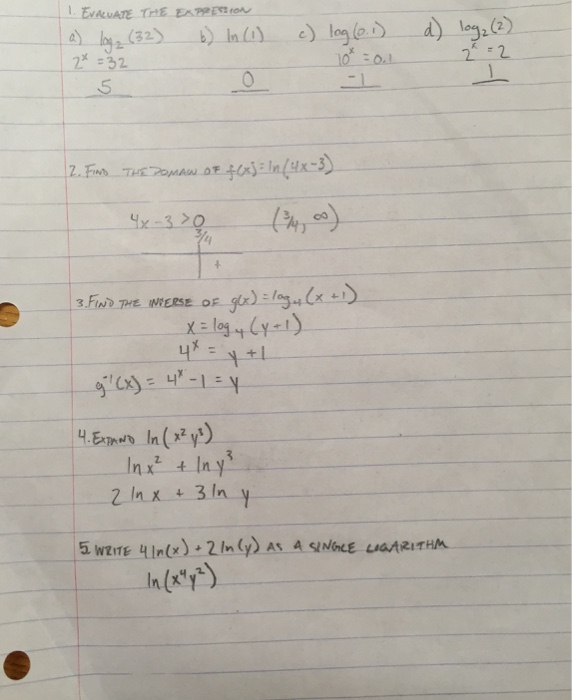 1. EVALUATE THE EXPRESSION
a) log₂(32) b) ln(1) c) log(0.1) d) log₂(2)
2ˣ = 32 10ˣ = 0.1 2ˣ = 2
5 0 -1 1
2. FIND THE DOMAIN OF f(x) = ln(4x-3)
4x-3 > 0 (3/4, ∞)
3/4
+
3. FIND THE INVERSE OF g(x) = log₄(x+1)
x = log₄(y+1)
4ˣ = y+1
g⁻¹(x) = 4ˣ - 1 = y
4. EXPAND ln(x²y³)
ln x² + ln y³
2 ln x + 3 ln y
5. WRITE 4 ln(x) + 2 ln(y) AS A SINGLE LOGARITHM
ln(x⁴y²)